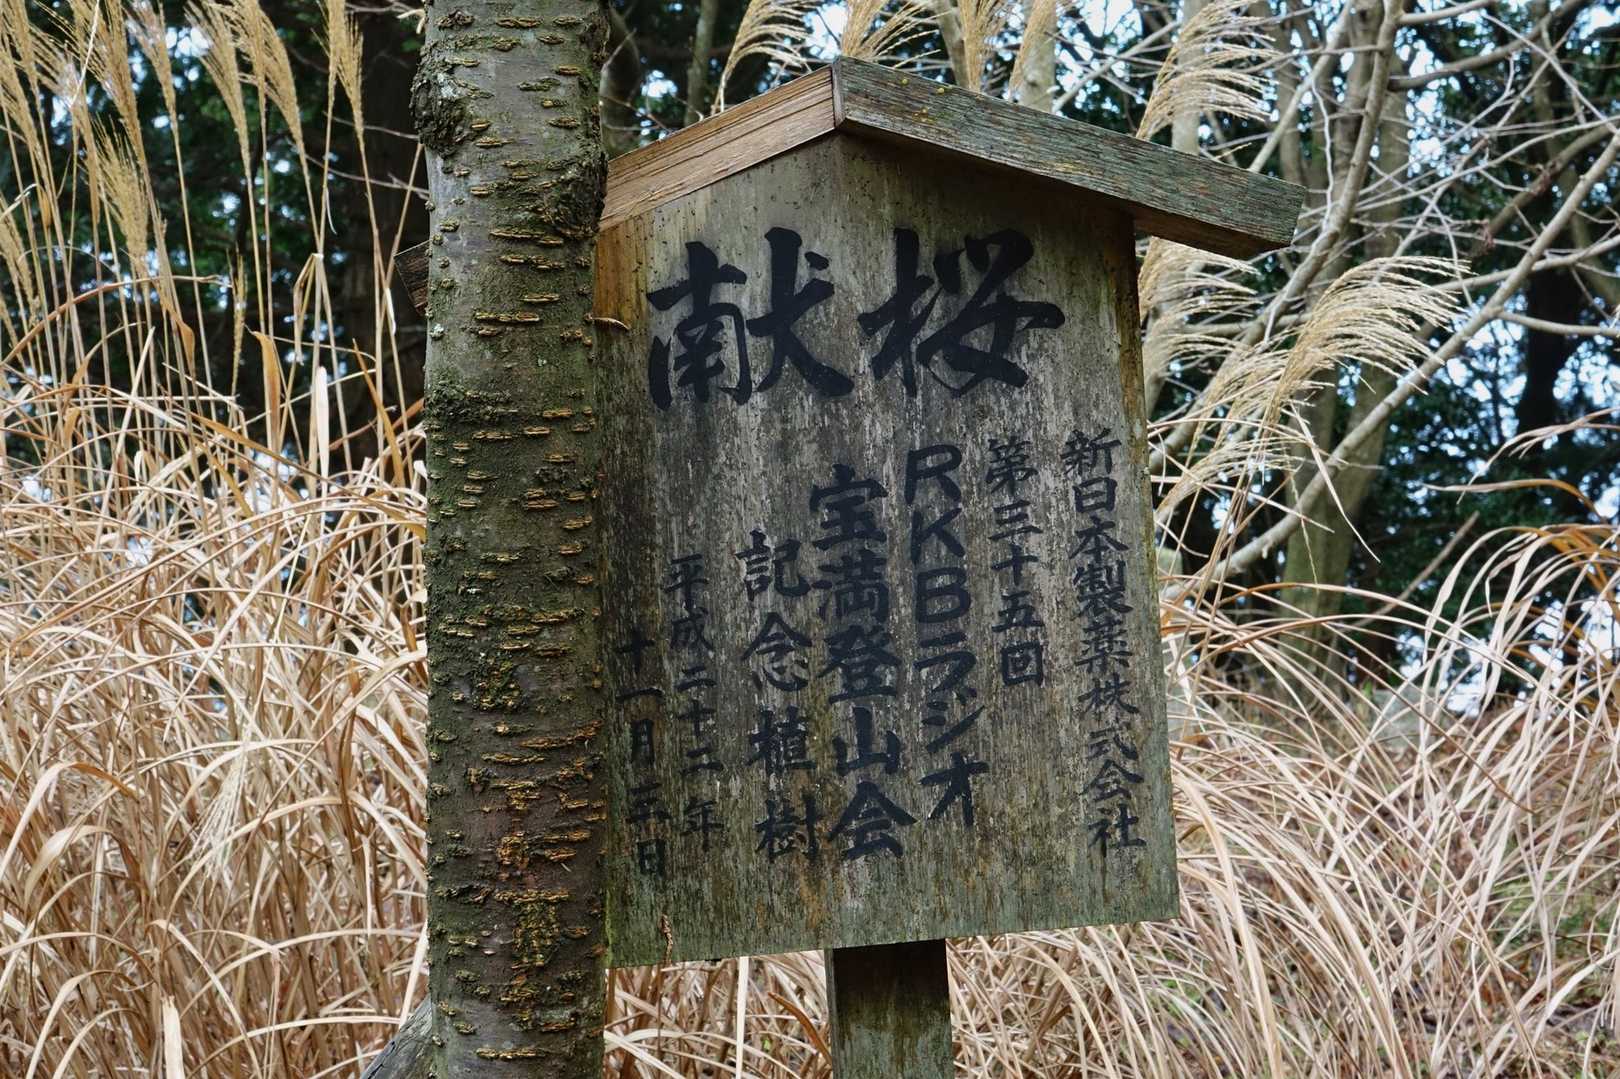 献桜
新日本製薬株式会社
第三十五回
RKBラジオ
宝満登山会
記念植樹
平成二十二年
十一月三日